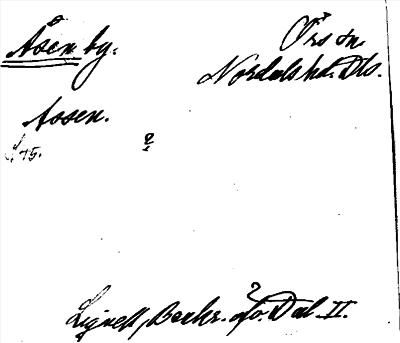 Åsen by.
Örs sn
Nordals hd. Dls.
Assen.
Lignell, Beskr. Dal II.